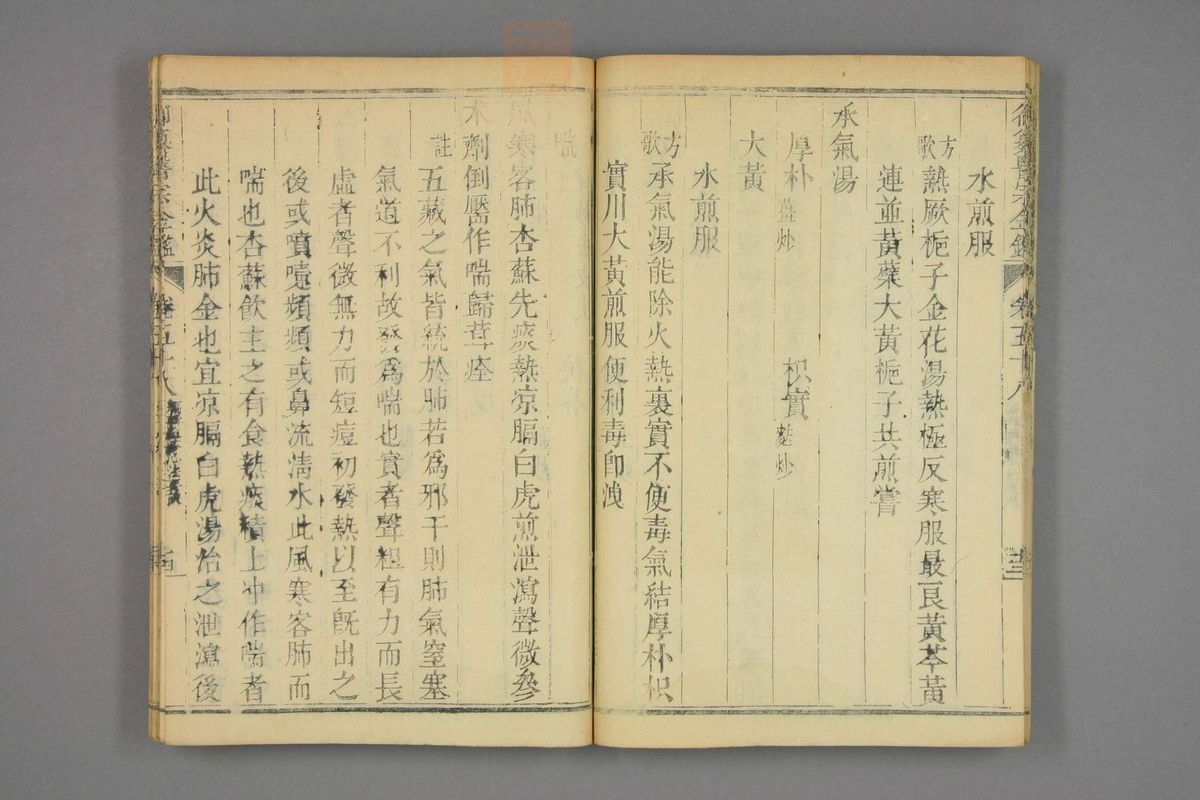 水煎服
方歌 熱厥梔子金花湯熱極反寒服最良黃芩黃
連並黃蘗大黃梔子共煎嘗
承氣湯
厚朴 薑炒 枳實 麩炒
大黃
水煎服
方歌 承氣湯能除火熱裏實不便毒氣結厚朴枳
實川大黃煎服便利毒卽洩
御纂醫宗金鑑 卷五十八
喘
風寒客肺杏蘇先痰熱涼膈白虎煎泄瀉聲微參
朮劑倒靨作喘歸茸痊
註 五藏之氣皆統於肺若爲邪干則肺氣窒塞
氣道不利故發爲喘也實者聲粗有力而長
虛者聲微無力而短痘初發熱以至旣出之
後或噴嚏頻頻或鼻流清水此風寒客肺而
喘也杏蘇飲主之有食熱痰積上冲作喘者
此火炎肺金也宜凉膈白虎湯治之泄瀉後
御纂醫宗金鑑 卷五十八